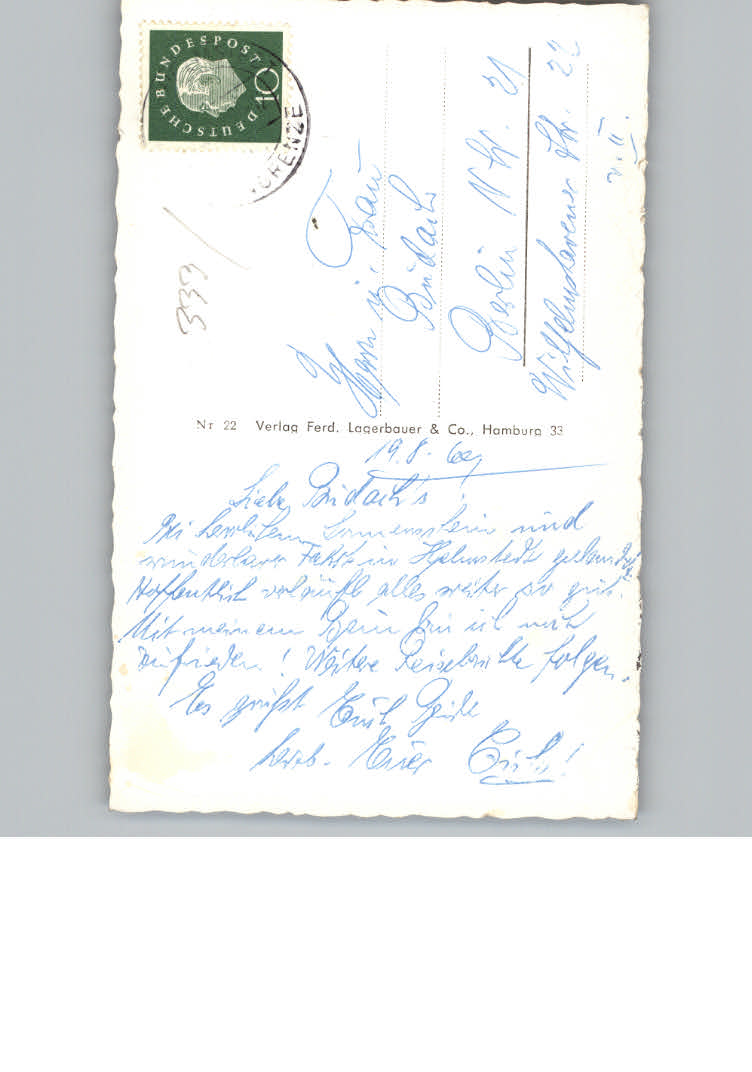 DEUTSCHE BUNDESPOST
10
333
Herrn u. Frau
Budach
Berlin N Str. 21
Wilhelmshavener Str. 22
v. II.
Nr 22 Verlag Ferd. Lagerbauer & Co., Hamburg 33
19.8.60
Liebe Budach's!
Bei herrlichem Sonnenschein und
wunderbarer Fahrt in Helmstedt gelandet.
Hoffentlich verläuft alles weiter so gut.
Mit meinem Bein bin ich auch
zufrieden! Weitere Reiseberichte folgen.
Es grüßt Euch Beide
herzl. Eure